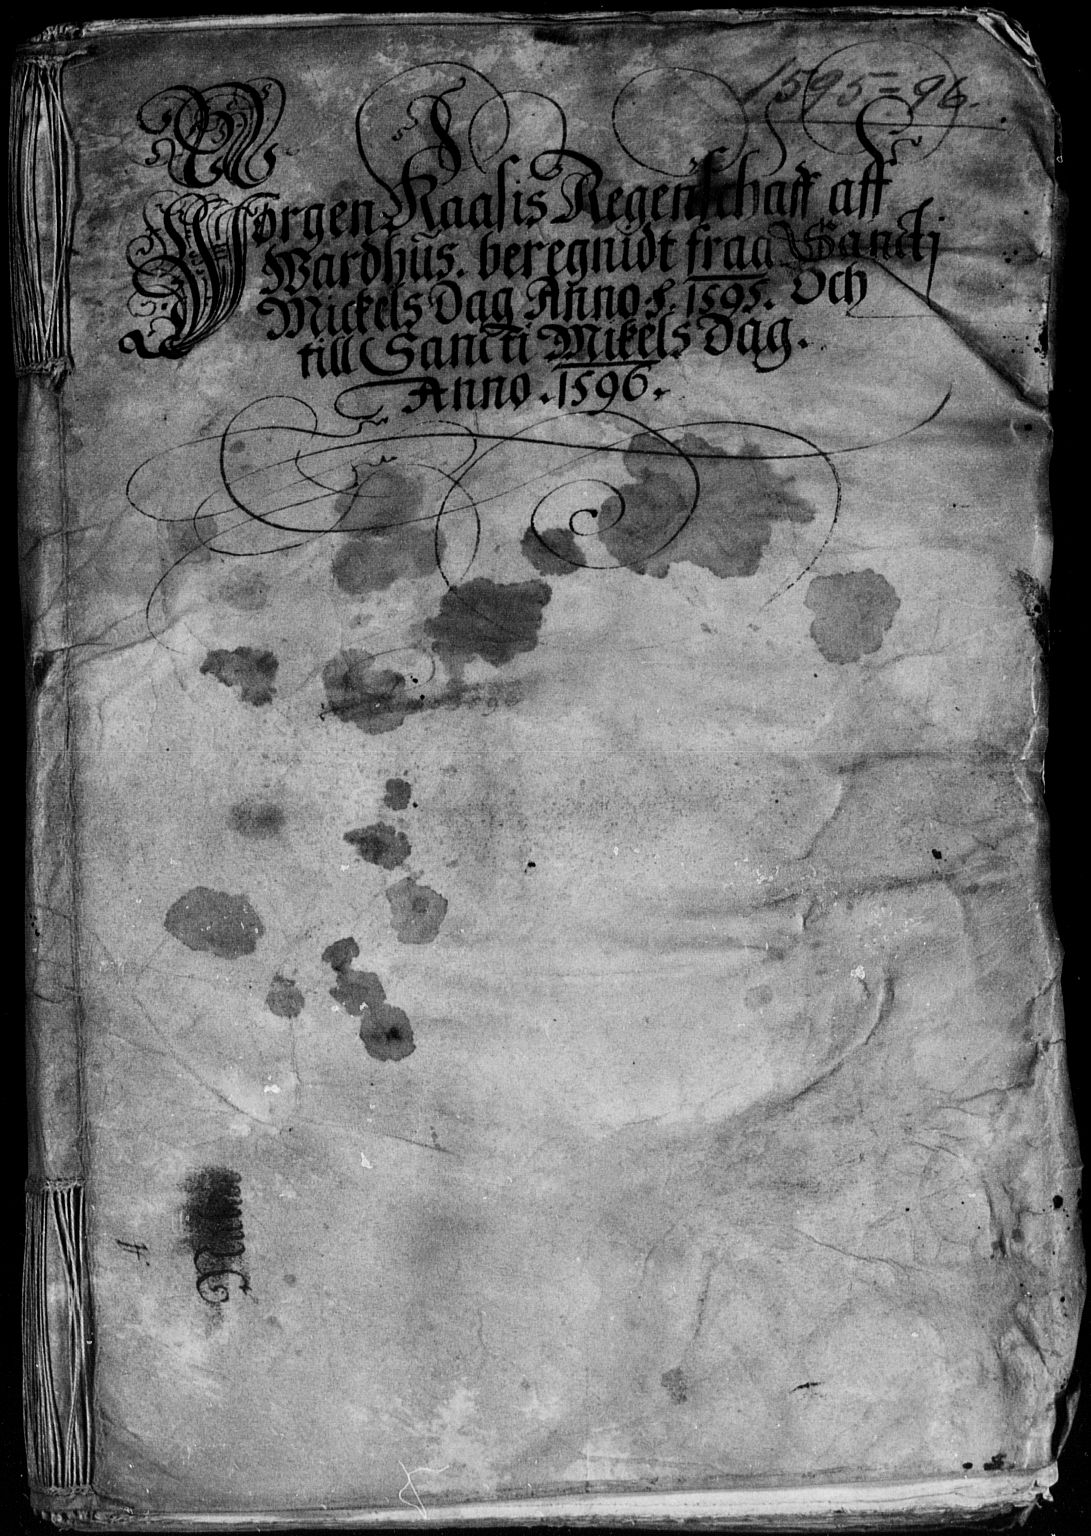 1595=96.
Jørgen Kaasis Regenschaff aff
Wardhus. beregnidt fraa Sancti
Mickels Dag Anno. 1595. Och
till Sancti Mikels Dag.
Anno. 1596.